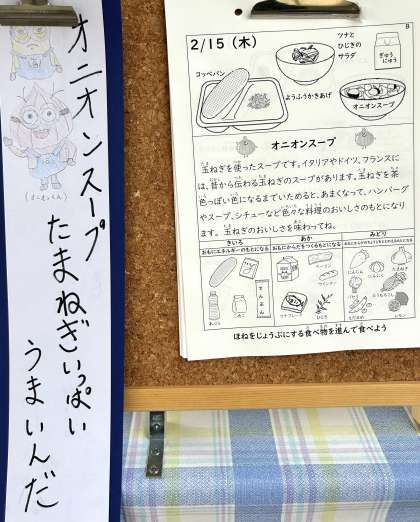 オニオンスープ
たまねぎいっぱい
うまいんだ
(オニオンくん)
2/15(木)
B
コッペパン
ツナと
ひじきの
サラダ
ぎゅう
にゅう
ようふうかきあげ
オニオンスープ
オニオンスープ
玉ねぎを使ったスープです。イタリアやドイツ、フランスに
は、昔から伝わる玉ねぎのスープがあります。玉ねぎを茶
色っぽい色になるまでいためると、あまくなって、ハンバーグ
やスープ、シチューなど色々な料理のおいしさのもとになり
ます。玉ねぎのおいしさを味わってね。
きいろ
あか
みどり
おもにエネルギーのもとになる
おもにからだをつくるもとになる
ベーコン
ウインナー
ツナフレーク
ひじき
にんじん
たまねぎ
レモン
ほねをじょうぶにする食べ物を進んで食べよう